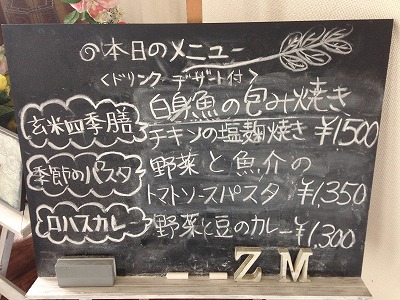 本日のメニュー
<ドリンク デザート付>
玄米四季膳
白身魚の包み焼き
チキンの塩麹焼き ¥1,500
季節のパスタ
野菜と魚介の
トマトソースパスタ ¥1,350
ロハスカレー
野菜と豆のカレー ¥1,300
Z M